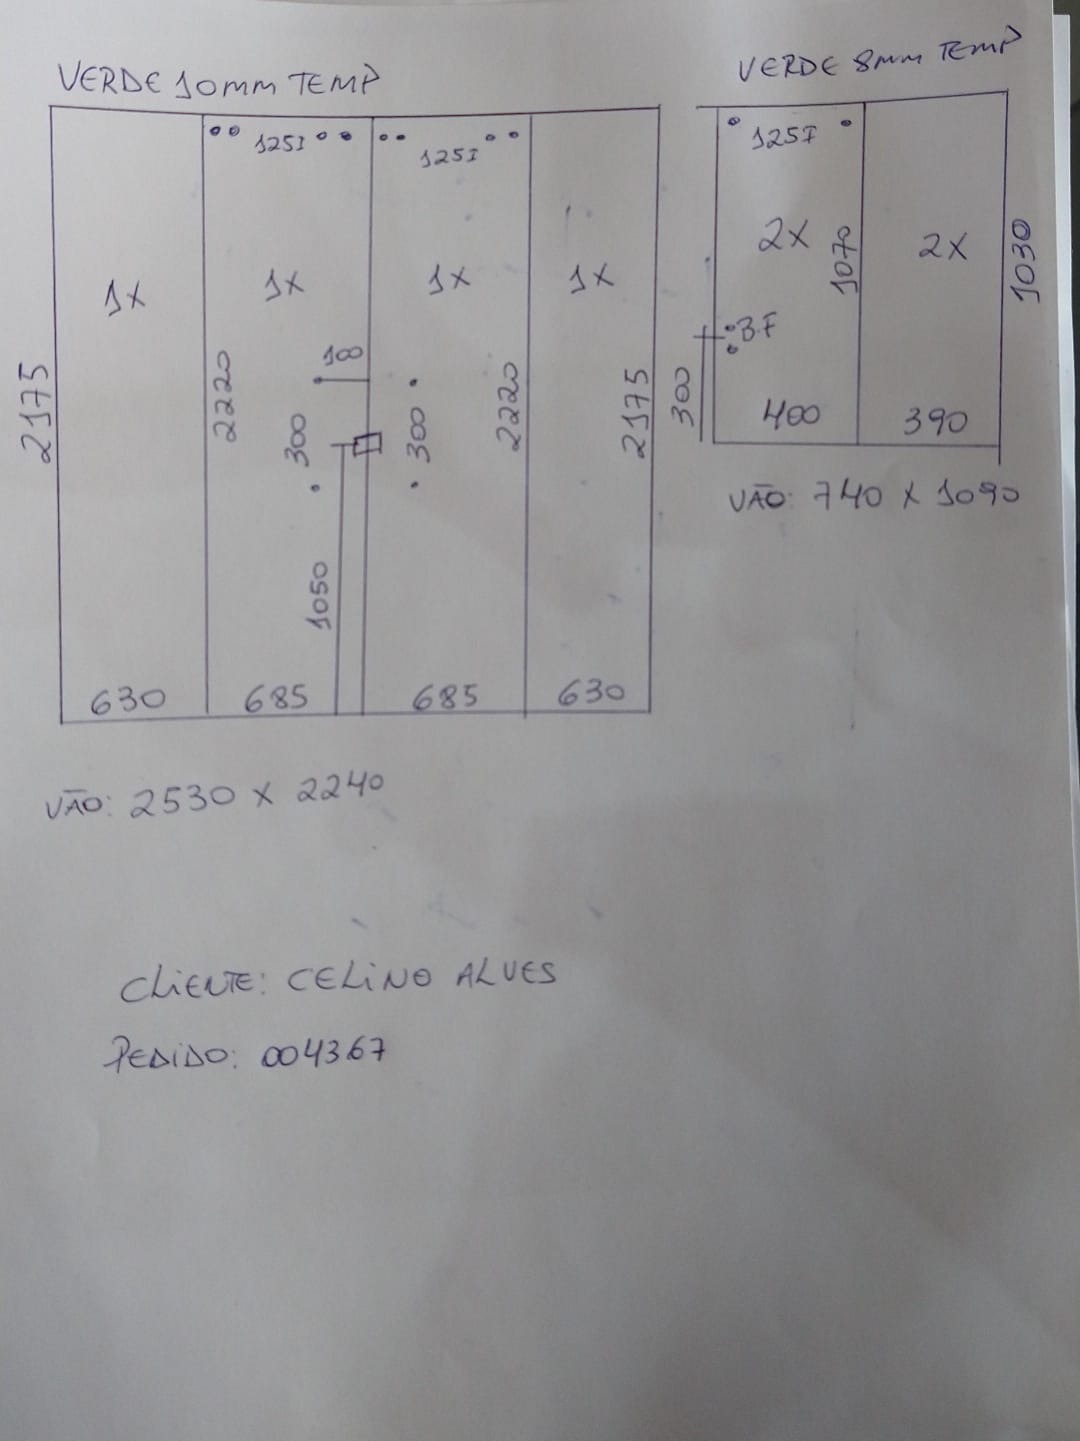 VERDE 10MM TEMP
1251
1251
1X
1X
1X
1X
100
2175
2220
300
300
2220
2175
1050
630
685
685
630
VÃO: 2530 X 2240
VERDE 8MM TEMP
1257
2X
1070
2X
1030
3.F
300
400
390
VÃO: 740 X 1090
CLIENTE: CELINO ALVES
PEDIDO: 004367